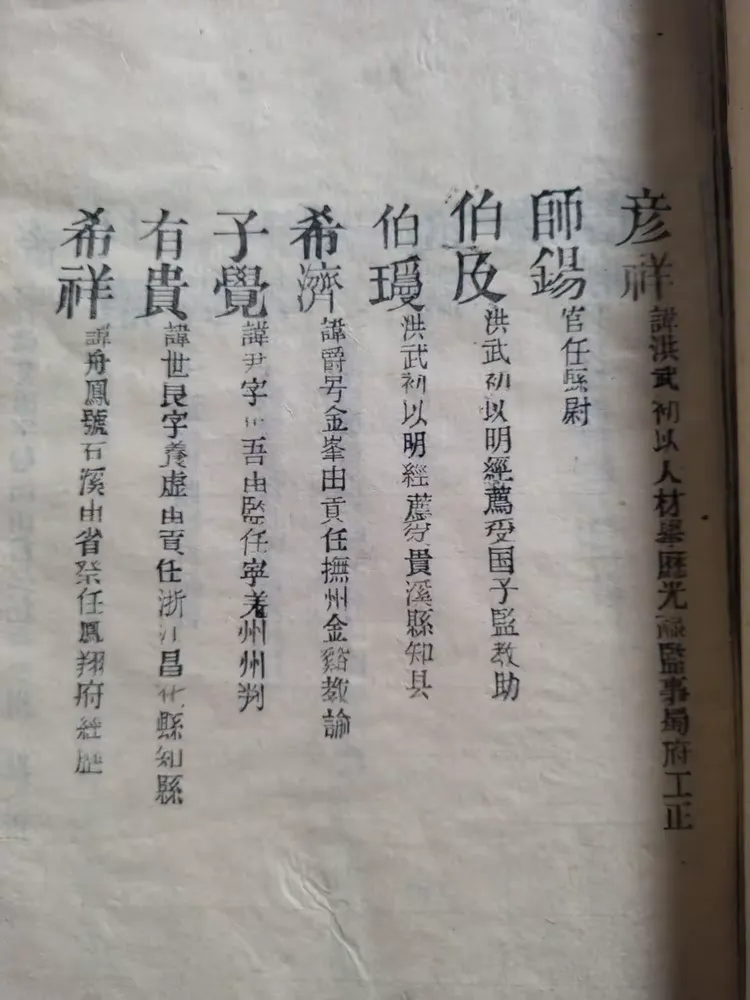 彦祥 諱洪武初以人材舉歷光祿監事蜀府工正
師錫 官任縣尉
伯及 洪武初以明經薦受国子監教助
伯瑗 洪武初以明經薦貴溪縣知县
希濟 諱爵号金峯由貢任撫州金谿教諭
子覺 諱尹字吾由監任寧羌州州判
有貴 諱世良字養虛由貢任浙江昌化縣知縣
希祥 諱舟鳳號石溪由省祭任鳳翔府經歷